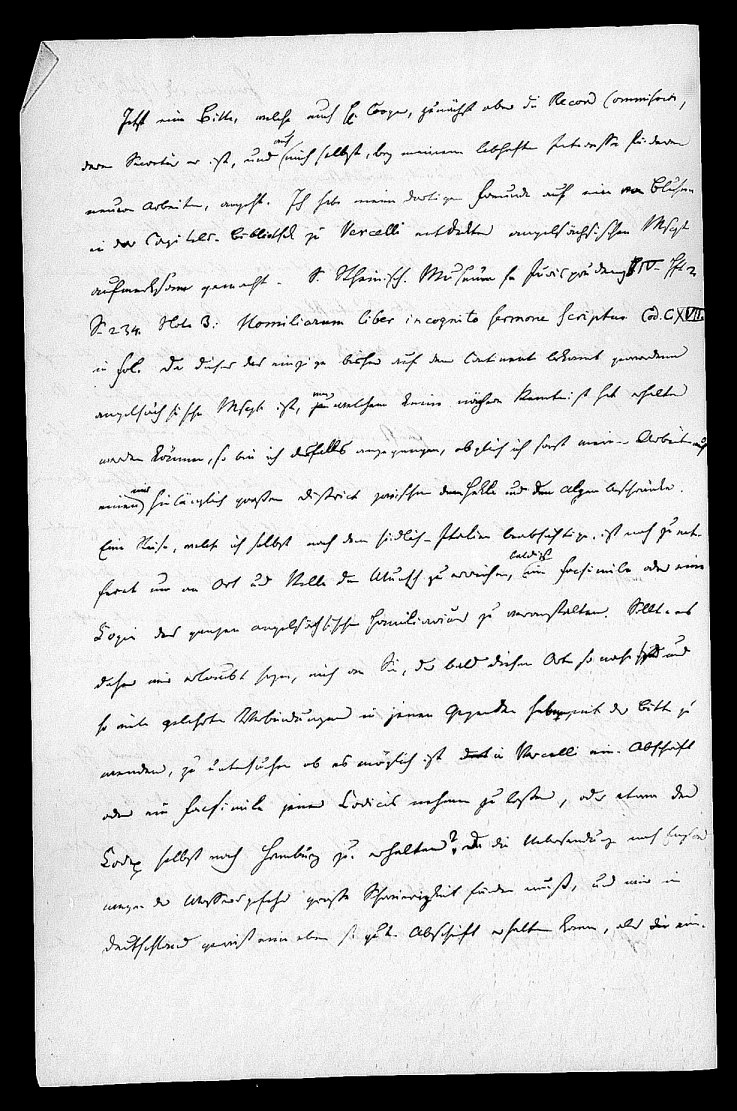 Jetzt eine Bitte, welche auch H. Cooper, zunächst aber die Record Commission,
deren Secretär er ist, und auch mich selbst, bey meinem lebhaften Interesse für deren
neuere Arbeiten, angeht. Ich habe meine dortigen Freunde auf ein von Bluhme
in der Capitels-Bibliothek zu Vercelli entdecktes angelsächsisches Mscpt
aufmerksam gemacht. S. Rheinisch. Museum für Jurisprudenz IV. Hft 2
S. 234 Note 3: Homiliarum liber incognito sermone scriptus Cod. CXVII.
in fol. Da dieses das einzige bisher auf dem Continent bekannt gewordene
angelsächsische Mscpt ist, von welchem keine nähere Kenntniß hat erhalten
werden können, so bin ich desfalls angegangen, obgleich ich sonst meine Arbeiten auf
einen mir hinlänglich großen District zwischen dem Hekla und den Alpen beschränke.
Eine Reise, welche ich selbst nach dem südlich. Italien beabsichtige, ist noch zu ent-
fernt um an Ort und Stelle den Wunsch zu erreichen, baldigst ein Facsimile oder eine
Copie des ganzen angelsächsischen Homiliarium zu veranstalten. Sollte es
daher mir erlaubt seyn, mich an Sie, der bald diesem Orte so nahe sind und
so viele gelehrte Verbindungen in jenen Gegenden haben, mit der Bitte zu
wenden, zu untersuchen ob es möglich ist in Vercelli eine Abschrift
oder ein Facsimile jenes Codicis nehmen zu lassen, oder etwa den
Codex selbst nach Hamburg zu erhalten? Da die Uebersendung nach England
wegen der Wassersgefahr große Schwierigkeit finden muß, und wir in
Deutschland gewiß eine eben so gute Abschrift erhalten kann, als die ein-